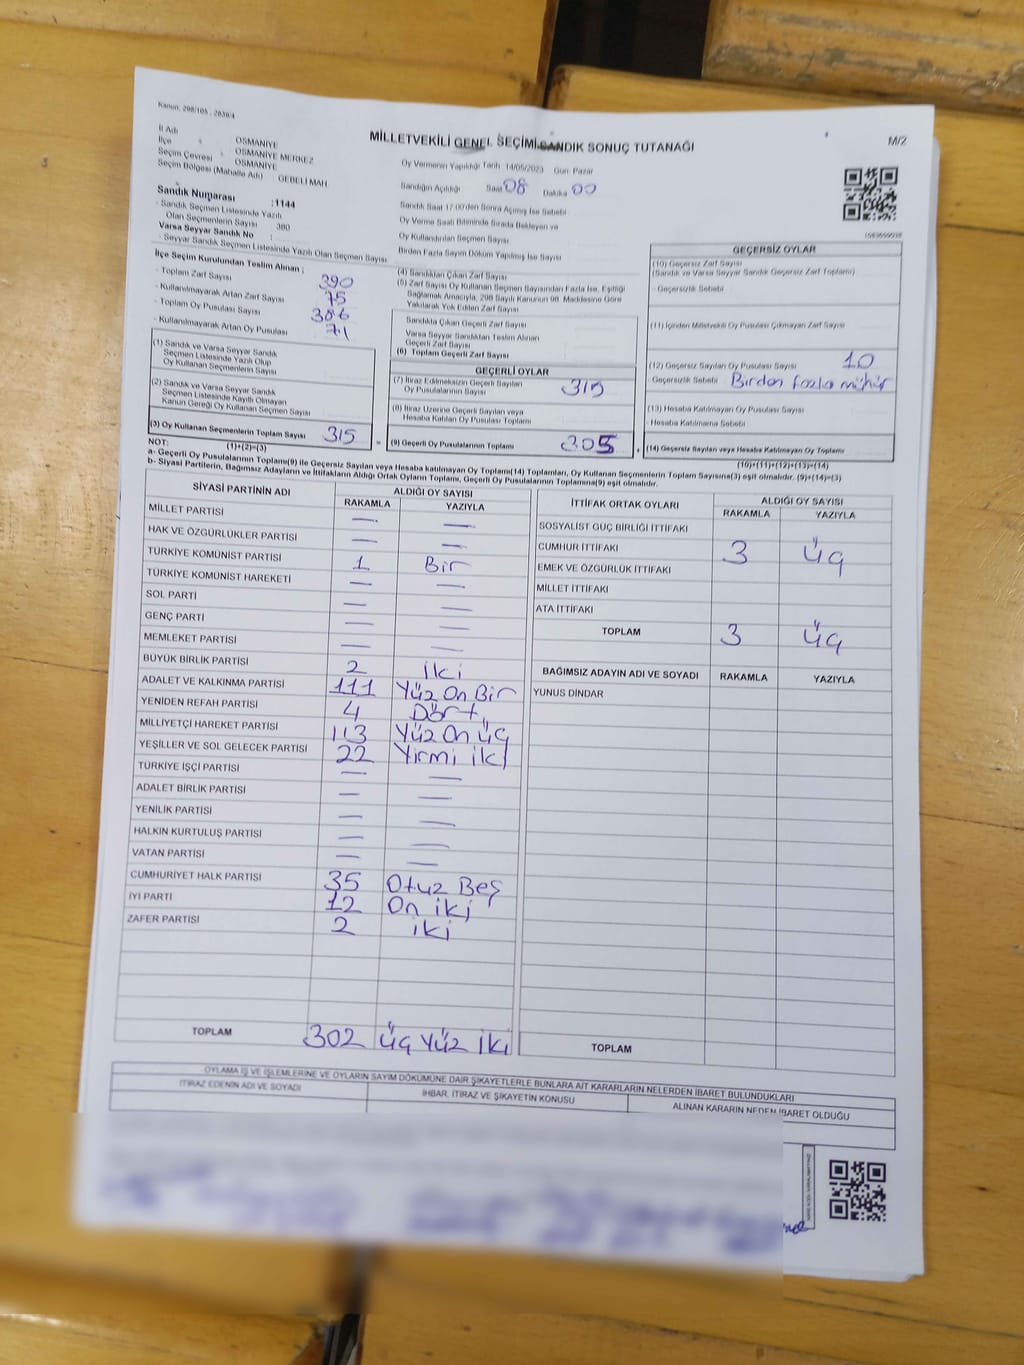 Kanun, 298/105 , 2839/4
MİLLETVEKİLİ GENEL SEÇİMİ SANDIK SONUÇ TUTANAĞI
M/2
İl Adı : OSMANİYE
İlçe : OSMANİYE MERKEZ
Seçim Çevresi : OSMANİYE
Seçim Bölgesi (Mahalle Adı) : GEBELİ MAH.
Sandık Numarası : 1144
- Sandık Seçmen Listesinde Yazılı
Olan Seçmenlerin Sayısı : 380
Varsa Seyyar Sandık No :
- Seyyar Sandık Seçmen Listesinde Yazılı Olan Seçmen Sayısı
Oy Vermenin Yapıldığı Tarih: 14/05/2023 Gün: Pazar
Sandığın Açıldığı Saat 08 Dakika 00
Sandık Saat 17:00'den Sonra Açılmış İse Sebebi
Oy Verme Saati Bitiminde Sırada Bekleyen ve
Oy Kullandırılan Seçmen Sayısı
Birden Fazla Sayım Döküm Yapılmış İse Sayısı
İlçe Seçim Kurulundan Teslim Alınan ;
- Toplam Zarf Sayısı 390
- Kullanılmayarak Artan Zarf Sayısı 75
- Toplam Oy Pusulası Sayısı 386
- Kullanılmayarak Artan Oy Pusulası 71
(1) Sandık ve Varsa Seyyar Sandık
Seçmen Listesinde Yazılı Olup
Oy Kullanan Seçmenlerin Sayısı
(2) Sandık ve Varsa Seyyar Sandık
Seçmen Listesinde Kayıtlı Olmayan
Kanun Gereği Oy Kullanan Seçmen Sayısı
(3) Oy Kullanan Seçmenlerin Toplam Sayısı 315
(4) Sandıktan Çıkan Zarf Sayısı
(5) Zarf Sayısı Oy Kullanan Seçmen Sayısından Fazla İse, Eşitliği
Sağlamak Amacıyla, 298 Sayılı Kanunun 98. Maddesine Göre
Yakılarak Yok Edilen Zarf Sayısı
Sandıkta Çıkan Geçerli Zarf Sayısı
Varsa Seyyar Sandıktan Teslim Alınan
Geçerli Zarf Sayısı
(6) Toplam Geçerli Zarf Sayısı
GEÇERLİ OYLAR
(7) İtiraz Edilmeksizin Geçerli Sayılan
Oy Pusulalarının Sayısı 315
(8) İtiraz Üzerine Geçerli Sayılan veya
Hesaba Katılan Oy Pusulası Toplamı
= (9) Geçerli Oy Pusulalarının Toplamı 305 +
GEÇERSİZ OYLAR
(10) Geçersiz Zarf Sayısı
(Sandık ve Varsa Seyyar Sandık Geçersiz Zarf Toplamı)
- Geçersizlik Sebebi
(11) İçinden Milletvekili Oy Pusulası Çıkmayan Zarf Sayısı
(12) Geçersiz Sayılan Oy Pusulası Sayısı 10
Geçersizlik Sebebi Birden fazla mühür
(13) Hesaba Katılmayan Oy Pusulası Sayısı
- Hesaba Katılmama Sebebi
(14) Geçersiz Sayılan veya Hesaba Katılmayan Oy Toplamı
NOT: (1)+(2)=(3)
(10)+(11)+(12)+(13)=(14)
a- Geçerli Oy Pusulalarının Toplamı(9) ile Geçersiz Sayılan veya Hesaba katılmayan Oy Toplamı(14) Toplamları, Oy Kullanan Seçmenlerin Toplam Sayısına(3) eşit olmalıdır. (9)+(14)=(3)
b- Siyasi Partilerin, Bağımsız Adayların ve İttifakların Aldığı Ortak Oyların Toplamı, Geçerli Oy Pusulalarının Toplamına(9) eşit olmalıdır.
SİYASİ PARTİNİN ADI ALDIĞI OY SAYISI
RAKAMLA YAZIYLA
MİLLET PARTİSİ — —
HAK VE ÖZGÜRLÜKLER PARTİSİ — —
TÜRKİYE KOMÜNİST PARTİSİ 1 Bir
TÜRKİYE KOMÜNİST HAREKETİ — —
SOL PARTİ — —
GENÇ PARTİ — —
MEMLEKET PARTİSİ — —
BÜYÜK BİRLİK PARTİSİ 2 iki
ADALET VE KALKINMA PARTİSİ 111 Yüz On Bir
YENİDEN REFAH PARTİSİ 4 Dört
MİLLİYETÇİ HAREKET PARTİSİ 113 Yüz On üç
YEŞİLLER VE SOL GELECEK PARTİSİ 22 Yirmi iki
TÜRKİYE İŞÇİ PARTİSİ — —
ADALET BİRLİK PARTİSİ — —
YENİLİK PARTİSİ — —
HALKIN KURTULUŞ PARTİSİ — —
VATAN PARTİSİ — —
CUMHURİYET HALK PARTİSİ 35 Otuz Beş
İYİ PARTİ 12 On iki
ZAFER PARTİSİ 2 iki
TOPLAM 302 üç Yüz iki
İTTİFAK ORTAK OYLARI ALDIĞI OY SAYISI
RAKAMLA YAZIYLA
SOSYALİST GÜÇ BİRLİĞİ İTTİFAKI
CUMHUR İTTİFAKI 3 üç
EMEK VE ÖZGÜRLÜK İTTİFAKI
MİLLET İTTİFAKI
ATA İTTİFAKI
TOPLAM 3 üç
BAĞIMSIZ ADAYIN ADI VE SOYADI RAKAMLA YAZIYLA
YUNUS DİNDAR
TOPLAM
OYLAMA İŞ VE İŞLEMLERİNE VE OYLARIN SAYIM DÖKÜMÜNE DAİR ŞİKAYETLERLE BUNLARA AİT KARARLARIN NELERDEN İBARET BULUNDUKLARI
İTİRAZ EDENİN ADI VE SOYADI İHBAR, İTİRAZ VE ŞİKAYETİN KONUSU ALINAN KARARIN NEDEN İBARET OLDUĞU